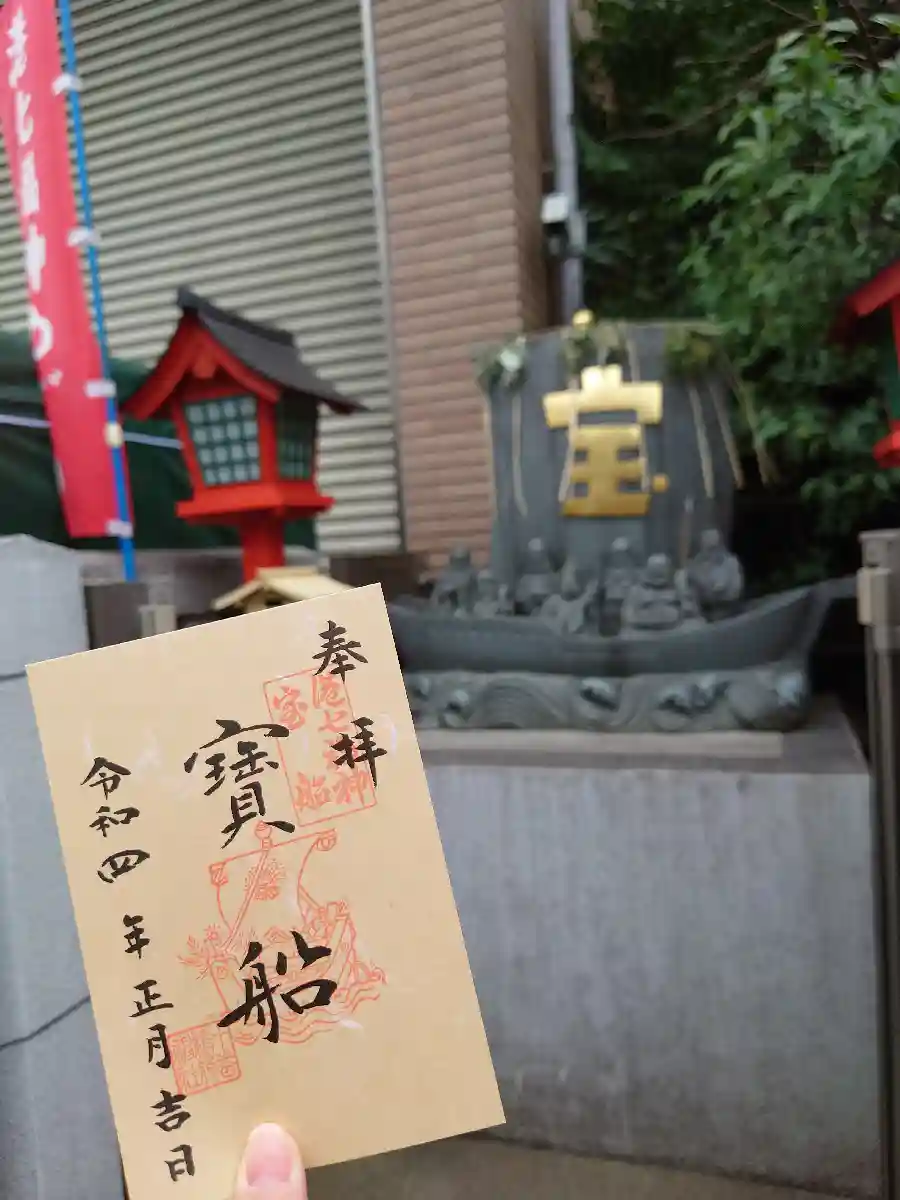 奉拝
寶船
令和四年正月吉日
港七福神
宝船
宝